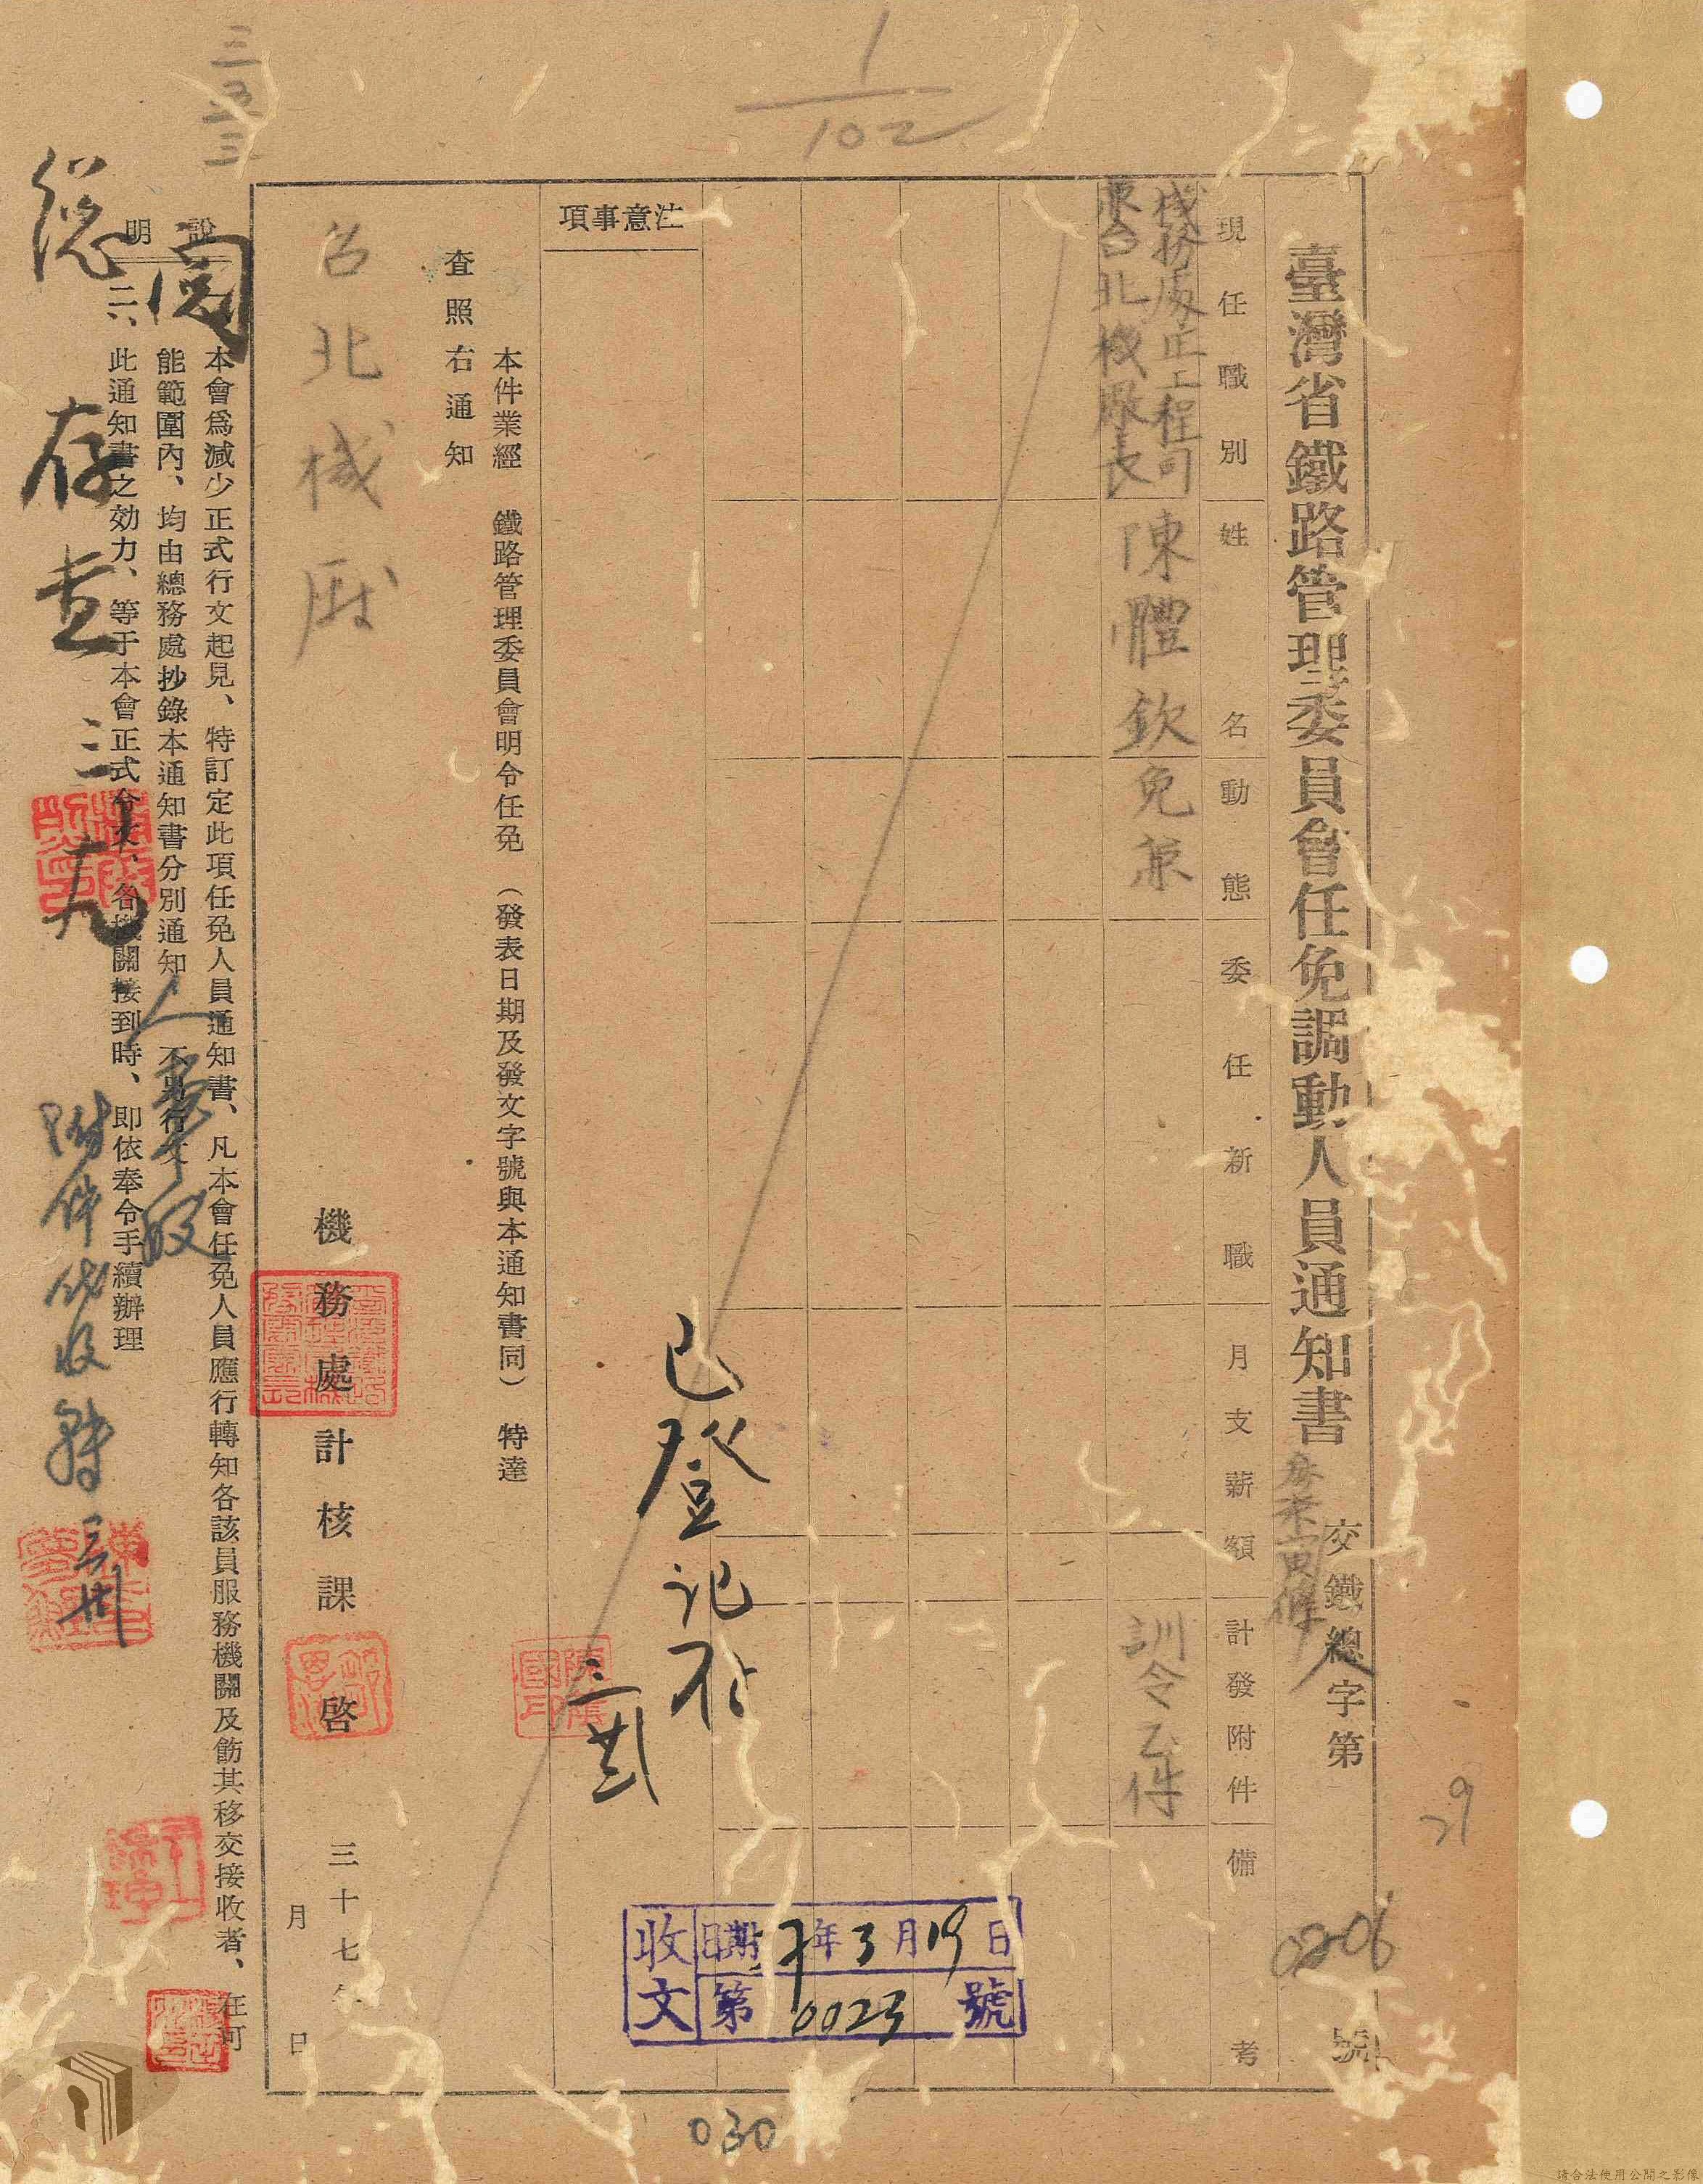 三五三
1/102
臺灣省鐵路管理委員會任免調動人員通知書
交鐵總字第
0206
號
29
現任職別
姓名
動態
委任新職
月支薪額
計發附件
備考
機務處正工程司
兼台北機廠長
陳體欽
免兼
訓令乙件
注意事項
已登記存
本件業經　鐵路管理委員會明令任免（發表日期及發文字號與本通知書同）特達
查照右通知
台北機厰
機務處計核課　啓
三十七年
月　日
說明
一、本會為減少正式行文起見、特訂定此項任免人員通知書、凡本會任免人員應行轉知各該員服務機關及飭其移交接收者、在可
能範圍內、均由總務處抄錄本通知書分別通知、不另行文
二、此通知書之効力、等于本會正式令文、各機關接到時、即依奉令手續辦理
閱
總
存查
三
人事股
附件代收轉
收文
日期37年3月19日
第0023號
030
請合法使用公開之影像